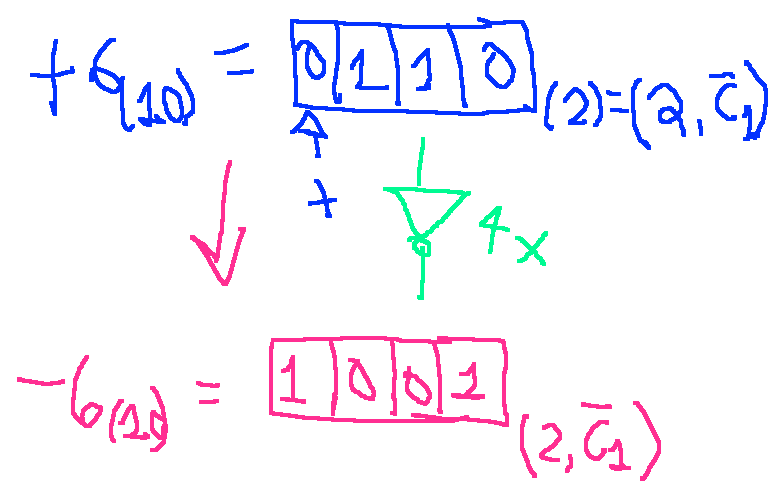 +6(10) = 0 1 1 0 (2)=(2, C̄1)
+
4x
-6(10) = 1 0 0 1 (2, C̄1)